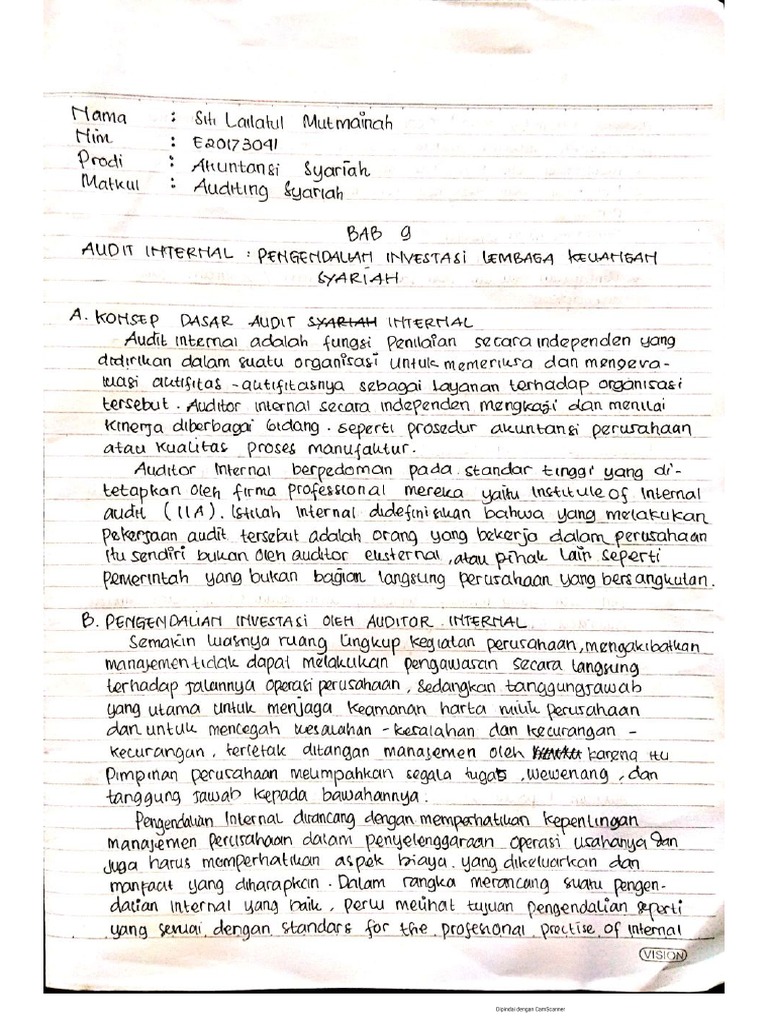 Nama : Siti Lailatul Mutmainah
Nim : E20173041
Prodi : Akuntansi Syariah
Matkul : Auditing Syariah
BAB 9
AUDIT INTERNAL : PENGENDALIAN INVESTASI LEMBAGA KEUANGAN
SYARIAH
A. KONSEP DASAR AUDIT SYARIAH INTERNAL
Audit internal adalah fungsi Penilaian secara independen yang
didirikan dalam suatu organisasi untuk memeriksa dan mengeva-
luasi aktifitas - aktifitasnya sebagai layanan terhadap organisasi
tersebut. Auditor internal secara independen mengkaji dan menilai
kinerja diberbagai bidang. seperti prosedur akuntansi perusahaan
atau kualitas proses manufaktur.
Auditor Internal berpedoman pada standar tinggi yang di-
tetapkan oleh firma professional mereka yaitu Institule of Internal
audit (IIA). Istilah Internal didefinisikan bahwa yang melakukan
Pekerjaan audit tersebut adalah orang yang bekerja dalam perusahaan
itu sendiri bukan oleh auditor eksternal, atau pihak lain seperti
Pemerintah yang bukan bagian langsung perusahaan yang bersangkutan.
B. PENGENDALIAN INVESTASI OLEH AUDITOR INTERNAL
Semakin luasnya ruang lingkup kegiatan perusahaan, mengakibatkan
manajemen tidak dapat melakukan pengawasan secara langsung
terhadap jalannya operasi perusahaan, sedangkan tanggungjawab
yang utama untuk menjaga keamanan harta milik perusahaan
dan untuk mencegah kesalahan - kesalahan dan kecurangan -
kecurangan, terletak ditangan manajemen oleh karena itu
Pimpinan perusahaan melimpahkan segala tugas, wewenang, dan
tanggung jawab kepada bawahannya.
Pengendalian Internal dirancang dengan memperhatikan kepentingan
manajemen perusahaan dalam penyelenggaraan operasi usahanya dan
juga harus memperhatikan aspek biaya yang dikeluarkan dan
manfaat yang diharapkan. Dalam rangka merancang suatu pengen-
dalian internal yang baik, perlu melihat tujuan pengendalian seperti
yang sesuai dengan standars for the profesional practise of Internal
VISION
Dipindai dengan CamScanner